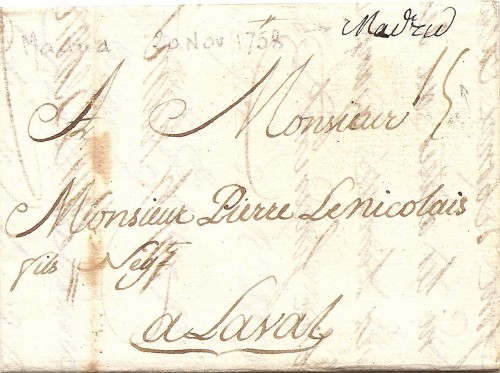 20 Nov 1758 Madrid
A Monsieur 15
Monsieur Pierre Lenicolais
fils Negt
a Laval